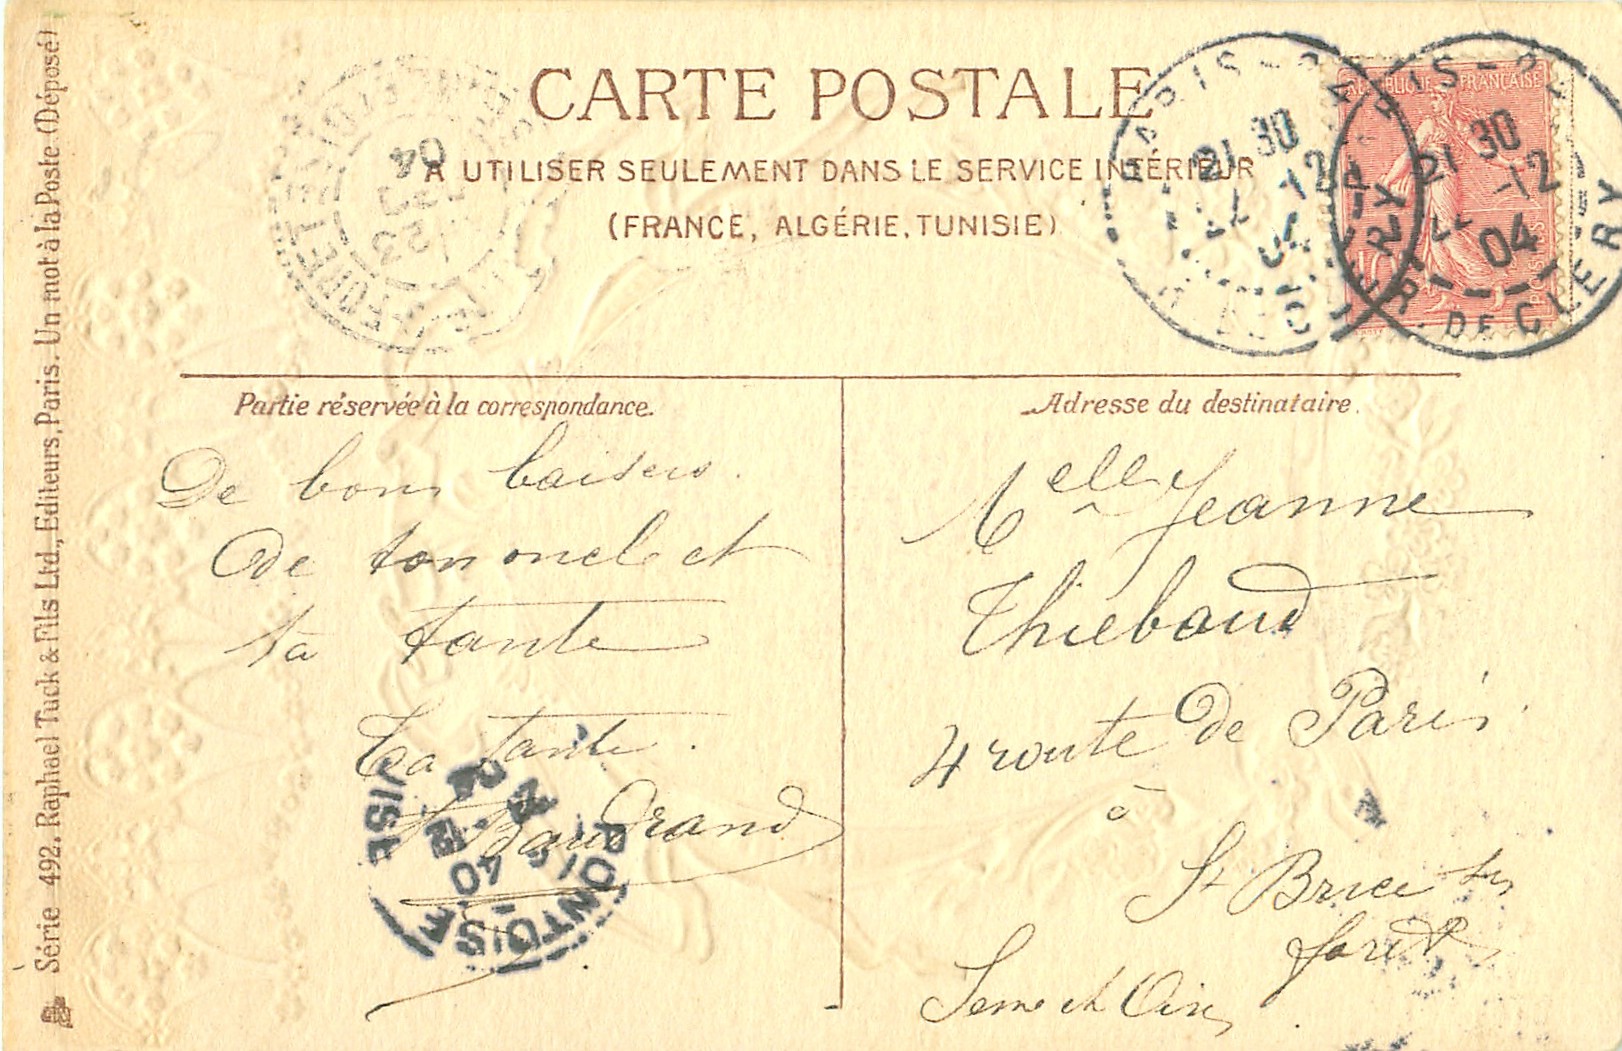 CARTE POSTALE
A UTILISER SEULEMENT DANS LE SERVICE INTÉRIEUR
(FRANCE, ALGÉRIE, TUNISIE)
Série 492. Raphael Tuck & Fils Ltd., Editeurs, Paris. Un mot à la Poste (Déposé)
PARIS
21 30
12
04
RÉPUBLIQUE FRANÇAISE
POSTES
PARIS
21 30
12
04
R. DE CLERY
23
04
Partie réservée à la correspondance.
De bons baisers.
de ton oncle et
ta tante
Ta tante.
Baudrand
PONTOISE
Adresse du destinataire.
Melle Jeanne
Thiébaud
4 route de Paris
à
St Brice sur
foret
Seine et Oise